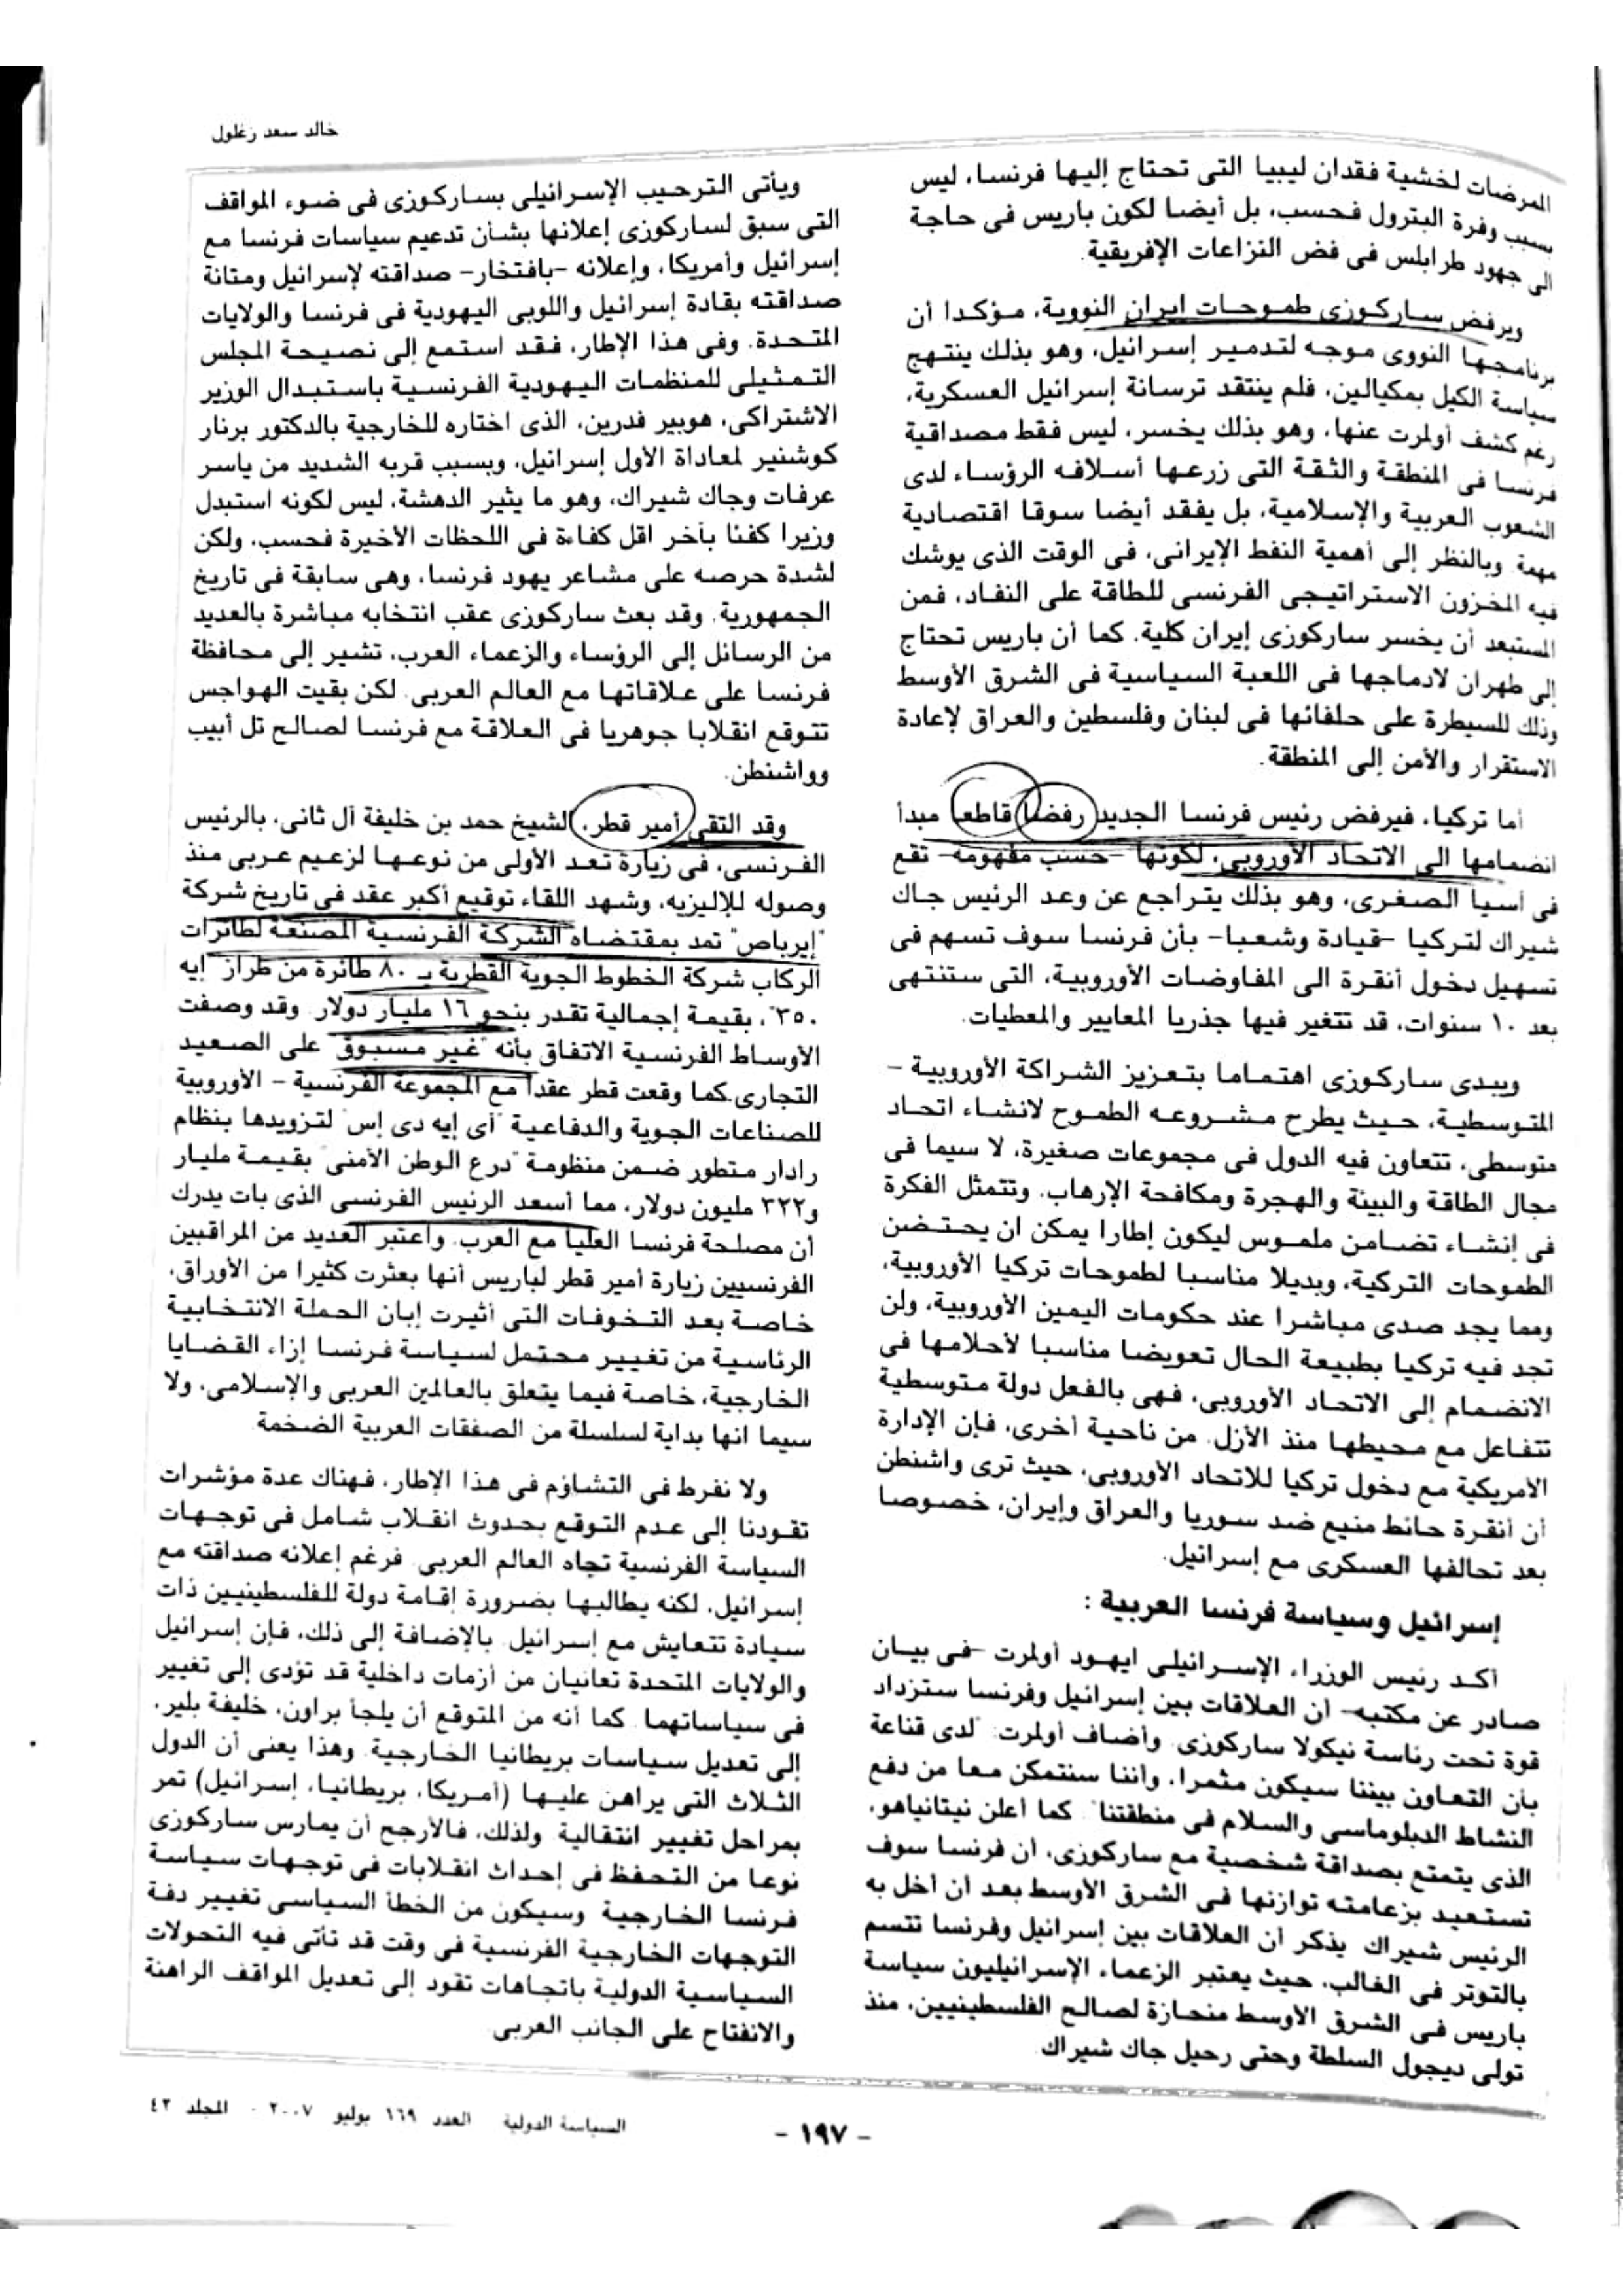 خالد سعد زغلول
الممرضات لخشية فقدان ليبيا التى تحتاج إليها فرنسا، ليس
بسبب وفرة البترول فحسب، بل أيضا لكون باريس فى حاجة
الى جهود طرابلس فى فض النزاعات الإفريقية.
ويرفض ساركوزى طموحات ايران النووية، مؤكدا أن
برنامجها النووى موجه لتدمير إسرائيل، وهو بذلك ينتهج
سياسة الكيل بمكيالين، فلم ينتقد ترسانة إسرائيل العسكرية،
رغم كشف أولمرت عنها، وهو بذلك يخسر، ليس فقط مصداقية
فرنسا فى المنطقة والثقة التى زرعها أسلافه الرؤساء لدى
الشعوب العربية والإسلامية، بل يفقد أيضا سوقا اقتصادية
مهمة. وبالنظر إلى أهمية النفط الإيرانى، فى الوقت الذى يوشك
فيه المخزون الاستراتيجى الفرنسى للطاقة على النفاد، فمن
المستبعد أن يخسر ساركوزى إيران كلية. كما أن باريس تحتاج
إلى طهران لادماجها فى اللعبة السياسية فى الشرق الأوسط
وذلك للسيطرة على حلفائها فى لبنان وفلسطين والعراق لإعادة
الاستقرار والأمن إلى المنطقة.
أما تركيا، فيرفض رئيس فرنسا الجديد رفضا قاطعا مبدأ
انضمامها الى الاتحاد الأوروبى، لكونها -حسب مفهومه- تقع
فى أسيا الصغرى، وهو بذلك يتراجع عن وعد الرئيس جاك
شيراك لتركيا -قيادة وشعبا- بأن فرنسا سوف تسهم فى
تسهيل دخول أنقرة الى المفاوضات الأوروبية، التى ستنتهى
بعد ١٠ سنوات، قد تتغير فيها جذريا المعايير والمعطيات.
ويبدى ساركوزى اهتماما بتعزيز الشراكة الأوروبية -
المتوسطية، حيث يطرح مشروعه الطموح لانشاء اتحاد
متوسطى، تتعاون فيه الدول فى مجموعات صغيرة، لا سيما فى
مجال الطاقة والبيئة والهجرة ومكافحة الإرهاب. وتتمثل الفكرة
فى إنشاء تضامن ملموس ليكون إطارا يمكن ان يحتضن
الطموحات التركية، وبديلا مناسبا لطموحات تركيا الأوروبية،
ومما يجد صدى مباشرا عند حكومات اليمين الأوروبية، ولن
تجد فيه تركيا بطبيعة الحال تعويضا مناسبا لأحلامها فى
الانضمام إلى الاتحاد الأوروبى، فهى بالفعل دولة متوسطية
تتفاعل مع محيطها منذ الأزل. من ناحية أخرى، فإن الإدارة
الأمريكية مع دخول تركيا للاتحاد الأوروبى، حيث ترى واشنطن
أن أنقرة حائط منيع ضد سوريا والعراق وإيران، خصوصا
بعد تحالفها العسكرى مع إسرائيل.
إسرائيل وسياسة فرنسا العربية :
أكد رئيس الوزراء الإسرائيلى ايهود أولمرت -فى بيان
صادر عن مكتبه- أن العلاقات بين إسرائيل وفرنسا ستزداد
قوة تحت رئاسة نيكولا ساركوزى. وأضاف أولمرت: "لدى قناعة
بأن التعاون بيننا سيكون مثمرا، وأننا سنتمكن معا من دفع
النشاط الدبلوماسى والسلام فى منطقتنا". كما أعلن نيتانياهو،
الذى يتمتع بصداقة شخصية مع ساركوزى، أن فرنسا سوف
تستعيد بزعامته توازنها فى الشرق الأوسط بعد أن أخل به
الرئيس شيراك. يذكر أن العلاقات بين إسرائيل وفرنسا تتسم
بالتوتر فى الغالب، حيث يعتبر الزعماء الإسرائيليون سياسة
باريس فى الشرق الأوسط منحازة لصالح الفلسطينيين، منذ
تولى ديجول السلطة وحتى رحيل جاك شيراك.
ويأتى الترحيب الإسرائيلى بساركوزى فى ضوء المواقف
التى سبق لساركوزى إعلانها بشأن تدعيم سياسات فرنسا مع
إسرائيل وأمريكا، وإعلانه -بافتخار- صداقته لإسرائيل ومتانة
صداقته بقادة إسرائيل واللوبى اليهودية فى فرنسا والولايات
المتحدة. وفى هذا الإطار، فقد استمع إلى نصيحة المجلس
التمثيلى للمنظمات اليهودية الفرنسية باستبدال الوزير
الاشتراكى، هوبير فدرين، الذى اختاره للخارجية بالدكتور برنار
كوشنير لمعاداة الأول إسرائيل، وبسبب قربه الشديد من ياسر
عرفات وجاك شيراك، وهو ما يثير الدهشة، ليس لكونه استبدل
وزيرا كفئا بآخر اقل كفاءة فى اللحظات الأخيرة فحسب، ولكن
لشدة حرصه على مشاعر يهود فرنسا، وهى سابقة فى تاريخ
الجمهورية. وقد بعث ساركوزى عقب انتخابه مباشرة بالعديد
من الرسائل إلى الرؤساء والزعماء العرب، تشير إلى محافظة
فرنسا على علاقاتها مع العالم العربى. لكن بقيت الهواجس
تتوقع انقلابا جوهريا فى العلاقة مع فرنسا لصالح تل أبيب
وواشنطن.
وقد التقى أمير قطر، الشيخ حمد بن خليفة آل ثانى، بالرئيس
الفرنسى، فى زيارة تعد الأولى من نوعها لزعيم عربى منذ
وصوله للإليزيه، وشهد اللقاء توقيع أكبر عقد فى تاريخ شركة
"إيرباص" تمد بمقتضاه الشركة الفرنسية المصنعة لطائرات
الركاب شركة الخطوط الجوية القطرية بـ ٨٠ طائرة من طراز "إيه
٣٥٠"، بقيمة إجمالية تقدر بنحو ١٦ مليار دولار. وقد وصفت
الأوساط الفرنسية الاتفاق بأنه "غير مسبوق" على الصعيد
التجارى.كما وقعت قطر عقدا مع المجموعة الفرنسية - الأوروبية
للصناعات الجوية والدفاعية "أى إيه دى إس" لتزويدها بنظام
رادار متطور ضمن منظومة "درع الوطن الأمنى" بقيمة مليار
و٣٢٢ مليون دولار، مما أسعد الرئيس الفرنسى الذى بات يدرك
أن مصلحة فرنسا العليا مع العرب. واعتبر العديد من المراقبين
الفرنسيين زيارة أمير قطر لباريس أنها بعثرت كثيرا من الأوراق،
خاصة بعد التخوفات التى أثيرت إبان الحملة الانتخابية
الرئاسية من تغيير محتمل لسياسة فرنسا إزاء القضايا
الخارجية، خاصة فيما يتعلق بالعالمين العربى والإسلامى، ولا
سيما انها بداية لسلسلة من الصفقات العربية الضخمة.
ولا نفرط فى التشاؤم فى هذا الإطار، فهناك عدة مؤشرات
تقودنا إلى عدم التوقع بحدوث انقلاب شامل فى توجهات
السياسة الفرنسية تجاه العالم العربى. فرغم إعلانه صداقته مع
إسرائيل، لكنه يطالبها بضرورة إقامة دولة للفلسطينيين ذات
سيادة تتعايش مع إسرائيل. بالإضافة إلى ذلك، فإن إسرائيل
والولايات المتحدة تعانيان من أزمات داخلية قد تؤدى إلى تغيير
فى سياساتهما. كما أنه من المتوقع أن يلجأ براون، خليفة بلير،
إلى تعديل سياسات بريطانيا الخارجية. وهذا يعنى أن الدول
الثلاث التى يراهن عليها (أمريكا، بريطانيا، إسرائيل) تمر
بمراحل تغيير انتقالية. ولذلك، فالأرجح أن يمارس ساركوزى
نوعا من التحفظ فى إحداث انقلابات فى توجهات سياسة
فرنسا الخارجية. وسيكون من الخطأ السياسى تغيير دفة
التوجهات الخارجية الفرنسية فى وقت قد تأتى فيه التحولات
السياسية الدولية باتجاهات تقود إلى تعديل المواقف الراهنة
والانفتاح على الجانب العربى.
- ١٩٧ -
السياسة الدولية العدد ١٦٩ يوليو ٢٠٠٧ - المجلد ٤٢